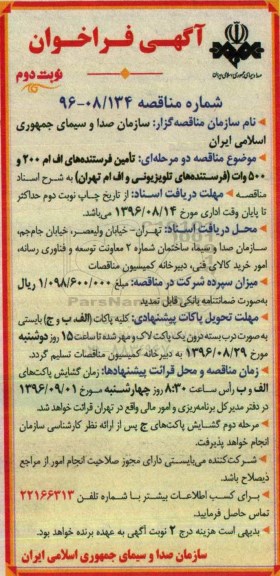 آگهی فراخوان
نوبت دوم
شماره مناقصه ۹۶-۰۸/۱۳۴
نام سازمان مناقصه‌گزار: سازمان صدا و سیمای جمهوری
اسلامی ایران
موضوع مناقصه دو مرحله‌ای: تأمین فرستنده‌های اف ام ۲۰۰ و
۵۰۰ وات (فرستنده‌های تلویزیونی و اف ام تهران) به شرح اسناد
مناقصه مهلت دریافت اسناد: از تاریخ چاپ نوبت دوم حداکثر
تا پایان وقت اداری مورخ ۱۳۹۶/۰۸/۱۴ می‌باشد.
محل دریافت اسناد: تهران- خیابان ولیعصر، خیابان جام‌جم،
سازمان صدا و سیما، ساختمان شماره ۲ معاونت توسعه و فناوری رسانه،
امور خرید کالای فنی، دبیرخانه کمیسیون مناقصات
میزان سپرده شرکت در مناقصه: مبلغ ۱/۰۹۸/۶۰۰/۰۰۰ ریال
به‌صورت ضمانتنامه بانکی قابل تمدید
مهلت تحویل پاکات پیشنهادی: کلیه پاکات (الف، ب و ج) بایستی
به صورت درب بسته درون یک پاکت لاک و مهر شده تا ساعت ۱۵ روز دوشنبه
مورخ ۱۳۹۶/۰۸/۲۹ به دبیرخانه کمیسیون مناقصات تسلیم گردد.
زمان مناقصه و محل قرائت پیشنهادها: زمان گشایش پاکت‌های
الف و ب رأس ساعت ۸:۳۰ روز چهارشنبه مورخ ۱۳۹۶/۰۹/۰۱
در دفتر مدیرکل برنامه‌ریزی و امور مالی واقع در تهران قرائت خواهد شد.
مرحله دوم گشایش پاکت‌های ج پس از ارائه نظر کارشناسی سازمان
انجام خواهد پذیرفت.
شرکت‌کننده می‌بایستی دارای مجوز صلاحیت انجام امور از مراجع
ذیصلاح باشد.
برای کسب اطلاعات بیشتر با شماره تلفن ۲۲۱۶۶۳۱۳
تماس حاصل فرمایید.
بدیهی است هزینه درج ۲ نوبت آگهی به عهده برنده خواهد بود.
سازمان صدا و سیمای جمهوری اسلامی ایران